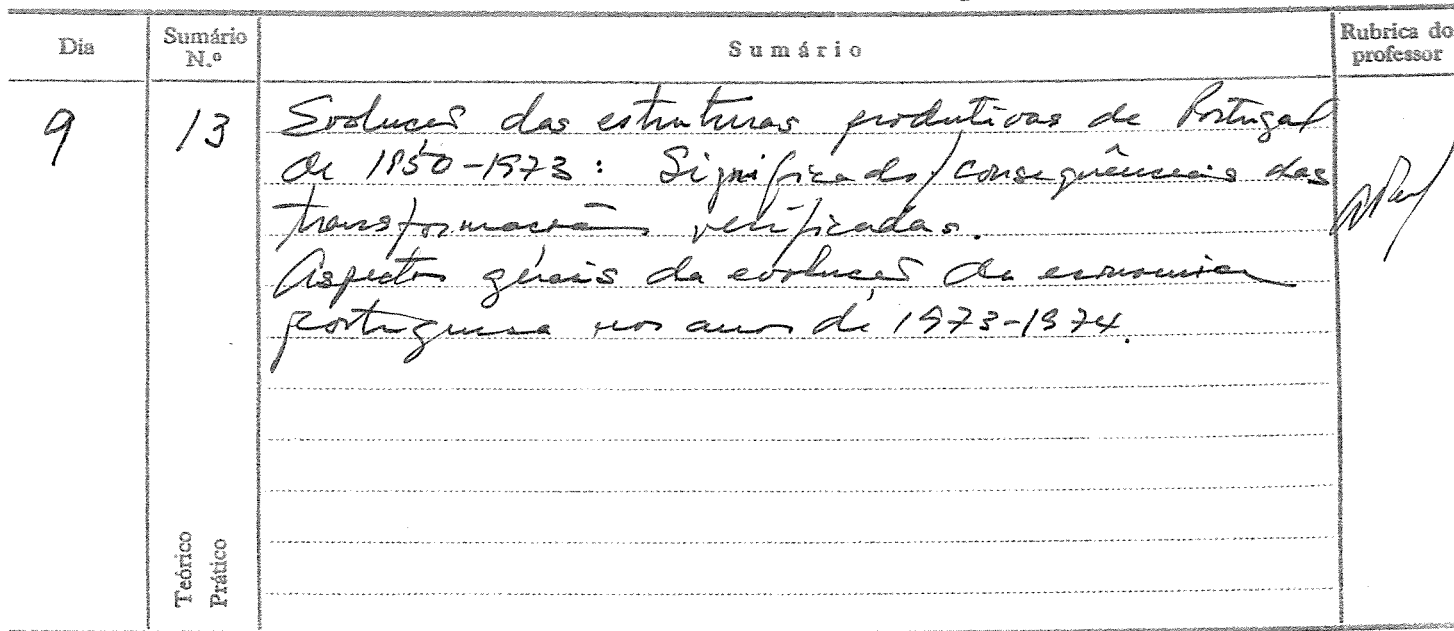 Dia
Sumário N.º
Sumário
Rubrica do professor
9
13
Evolução das estruturas produtivas de Portugal
de 1950-1973: Significado/consequências das
transformações verificadas.
Aspectos gerais da evolução da economia
portuguesa nos anos de 1973-1974.
Teórico
Prático